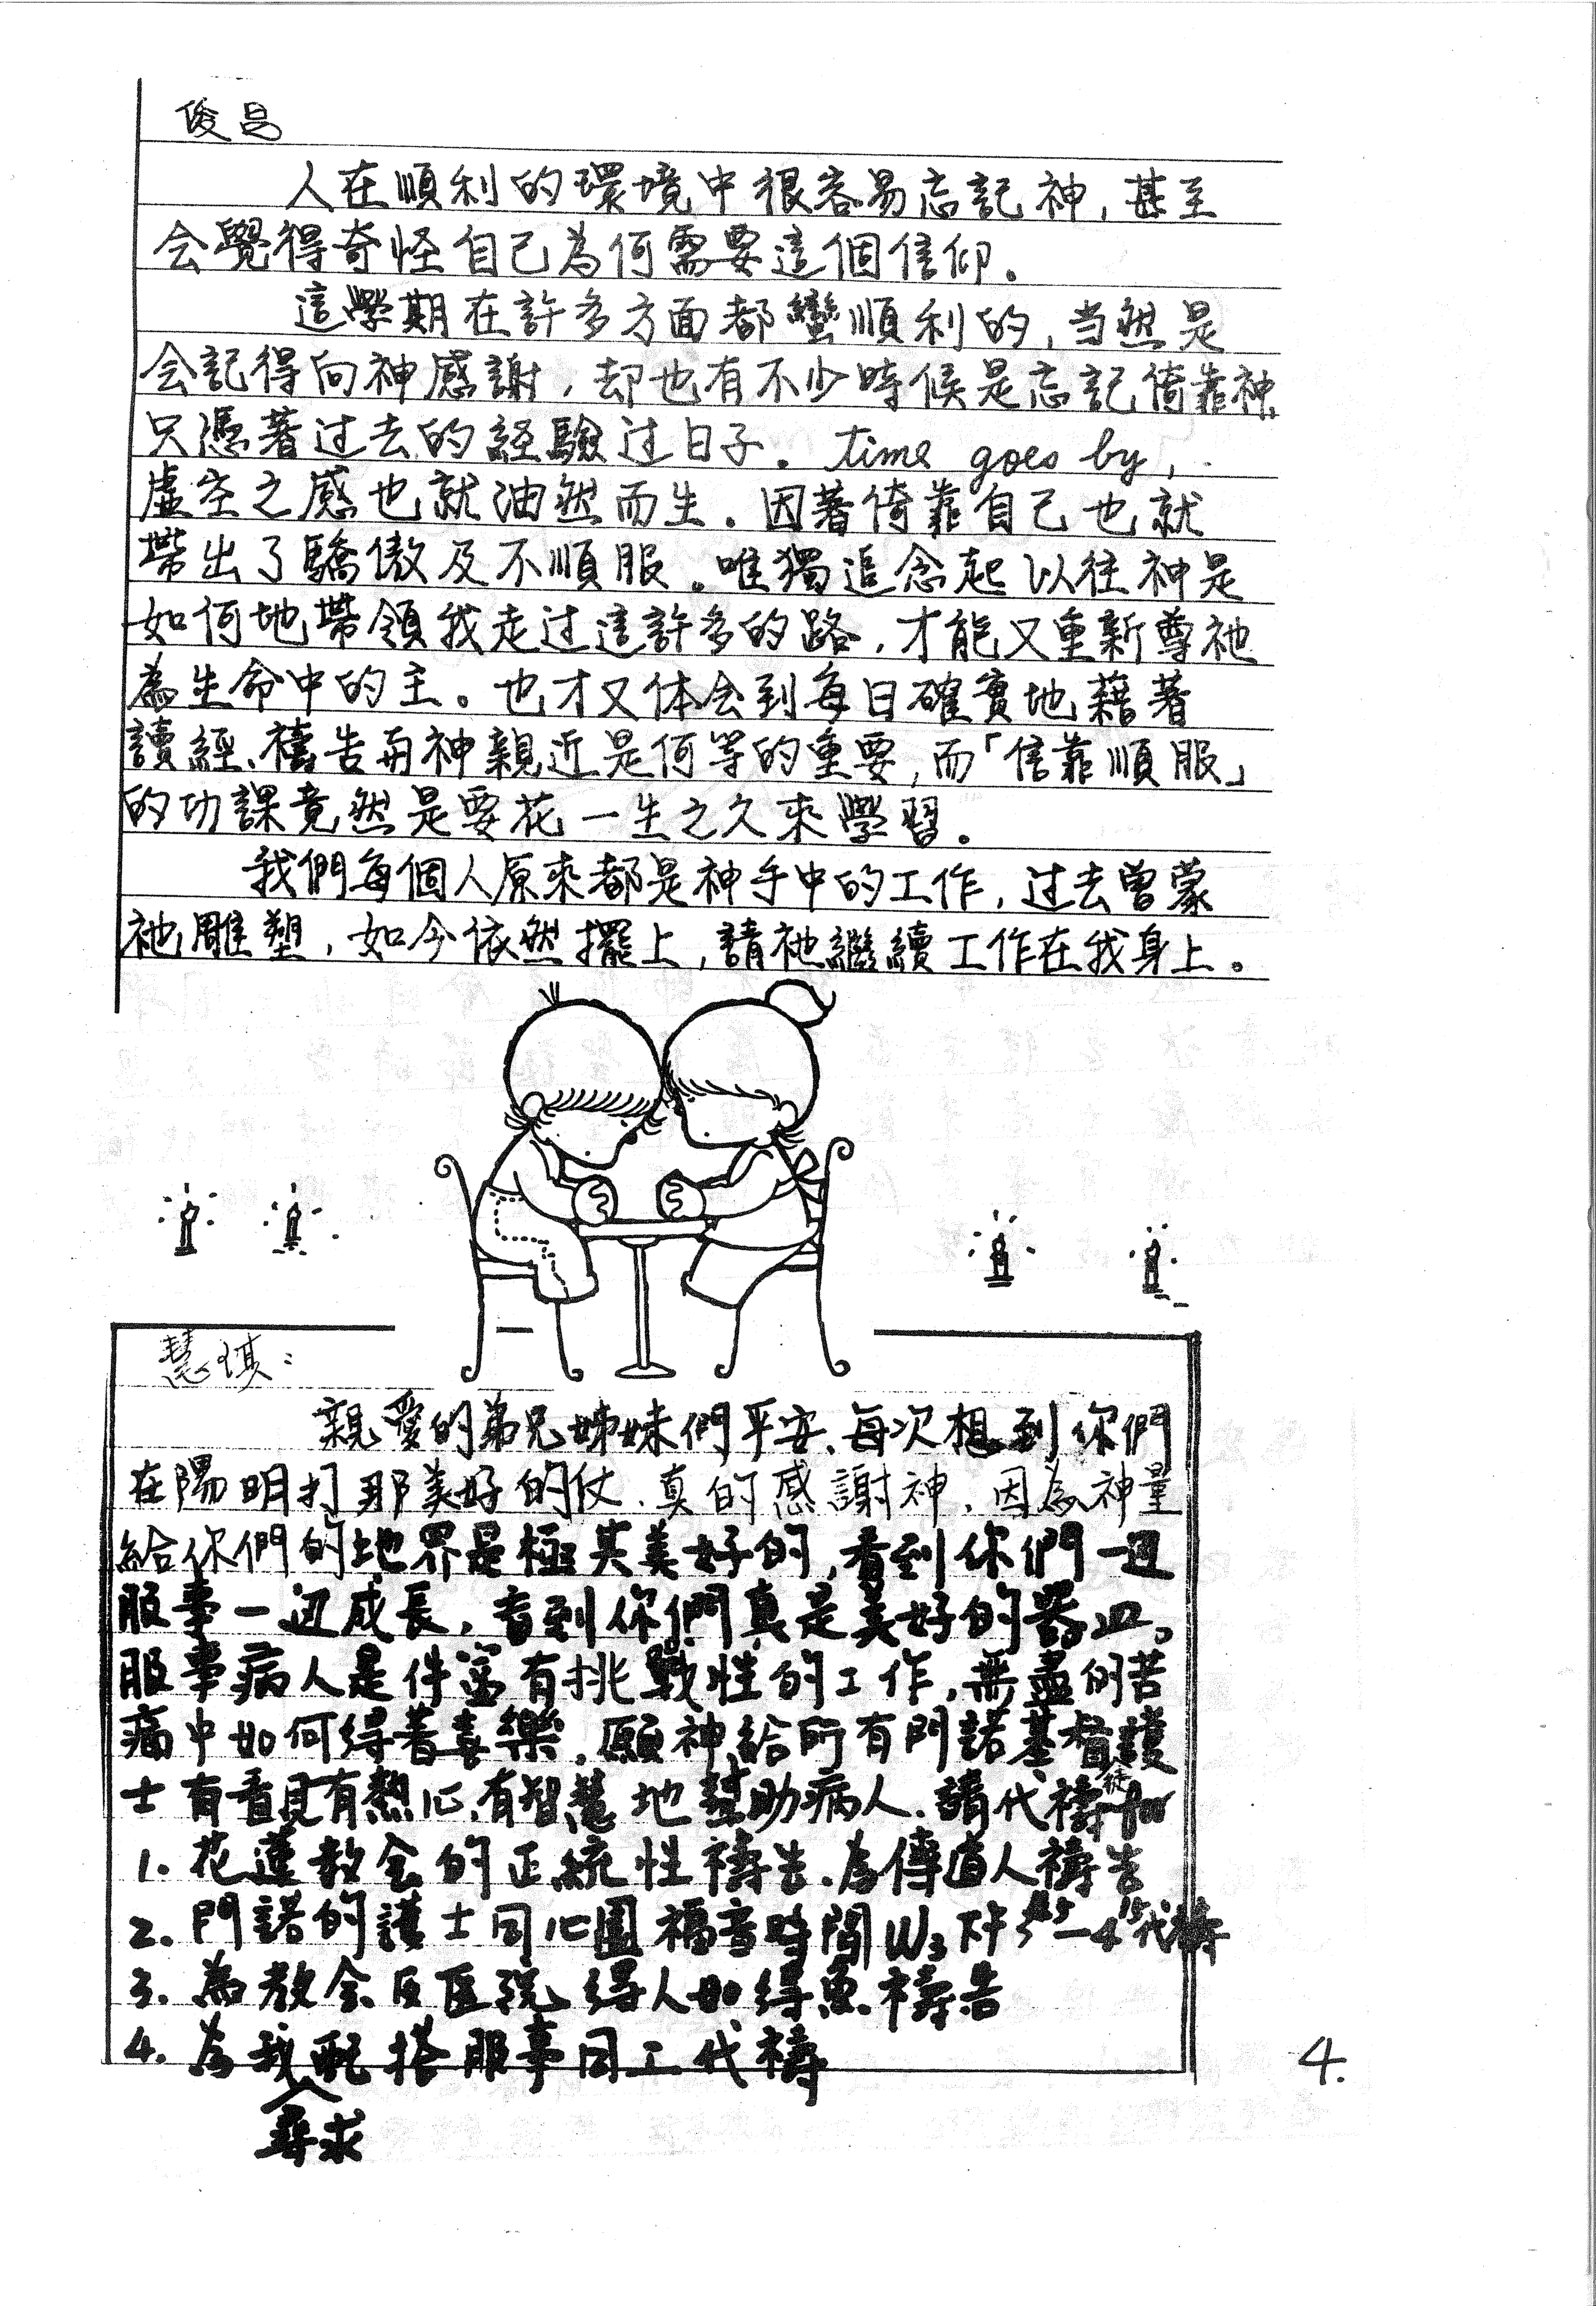 俊昌
人在順利的環境中很容易忘記神，甚至
会覺得奇怪自己為何需要這個信仰。
這學期在許多方面都蠻順利的，当然是
会記得向神感謝，却也有不少時候是忘記倚靠神、
只憑著过去的経驗过日子。time goes by，
虛空之感也就油然而生。因著倚靠自己也就
帶出了驕傲及不順服。唯獨追念起以往神是
如何地帶領我走过這許多的路，才能又重新尊祂
為生命中的主。也才又体会到每日確實地藉著
讀經、禱告與神親近是何等的重要，而「信靠順服」
的功課竟然是要花一生之久來學習。
我們每個人原來都是神手中的工作，过去曾蒙
祂雕塑，如今依然擺上，請祂繼續工作在我身上。
慧琪：
親愛的弟兄姊妹們平安、每次想到你們
在陽明打那美好的仗、真的感謝神，因為神量
給你們的地界是極其美好的，看到你們一边
服事一边成長，看到你們真是美好的器皿。
服事病人是件富有挑戰性的工作，無盡的苦
痛中如何得著喜樂，願神給所有門諾基督徒護
士有看見有熱心、有智慧地幫助病人、請代禱for
1. 花蓮教会的正統性禱告、為傳道人禱告
2. 門諾的護士同心圍福音時間W3下午 代禱
3. 為教会及医院得人如得魚禱告
4. 為我尋求配搭服事同工代禱
4.